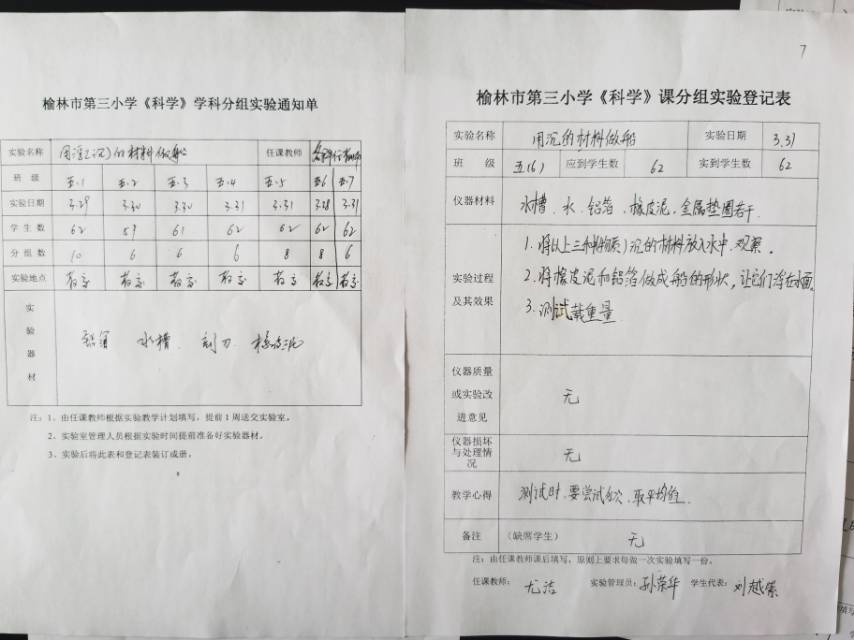 榆林市第三小学《科学》学科分组实验通知单
实验名称 用 的材料做船 任课教师
班 级 五.1 五.2 五.3 五.4 五.5 五6 五.7
实验日期 3.29 3.30 3.30 3.31 3.31 3.28 3.31
学生数 62 59 61 62 62 62 62
分组数 10 6 6 6 8 8 6
实验地点 教室 教室 教室 教室 教室 教室 教室
实验器材 铝箔 水槽、刻刀、橡皮泥
注：1、由任课教师根据实验教学计划填写，提前1周送交实验室。
2、实验室管理人员根据实验时间提前准备好实验器材。
3、实验后将此表和登记表装订成册。
7
榆林市第三小学《科学》课分组实验登记表
实验名称 用沉的材料做船 实验日期 3.31
班 级 五(6) 应到学生数 62 实到学生数 62
仪器材料 水槽、水、铝箔、橡皮泥、金属垫圈若干
实验过程及其效果
1.将以上三种物质)沉的材料放入水中,观察。
2.将橡皮泥和铝箔做成船的形状,让它们浮在水面。
3.测试载重量
仪器质量或实验改进意见 无
仪器损坏与处理情况 无
教学心得 测试时,要尝试多次,取平均值.
备注 (缺席学生) 无
注：由任课教师课后填写，原则上要求每做一次实验填写一份。
任课教师： 尤洁 实验管理员：孙荣华 学生代表：刘越